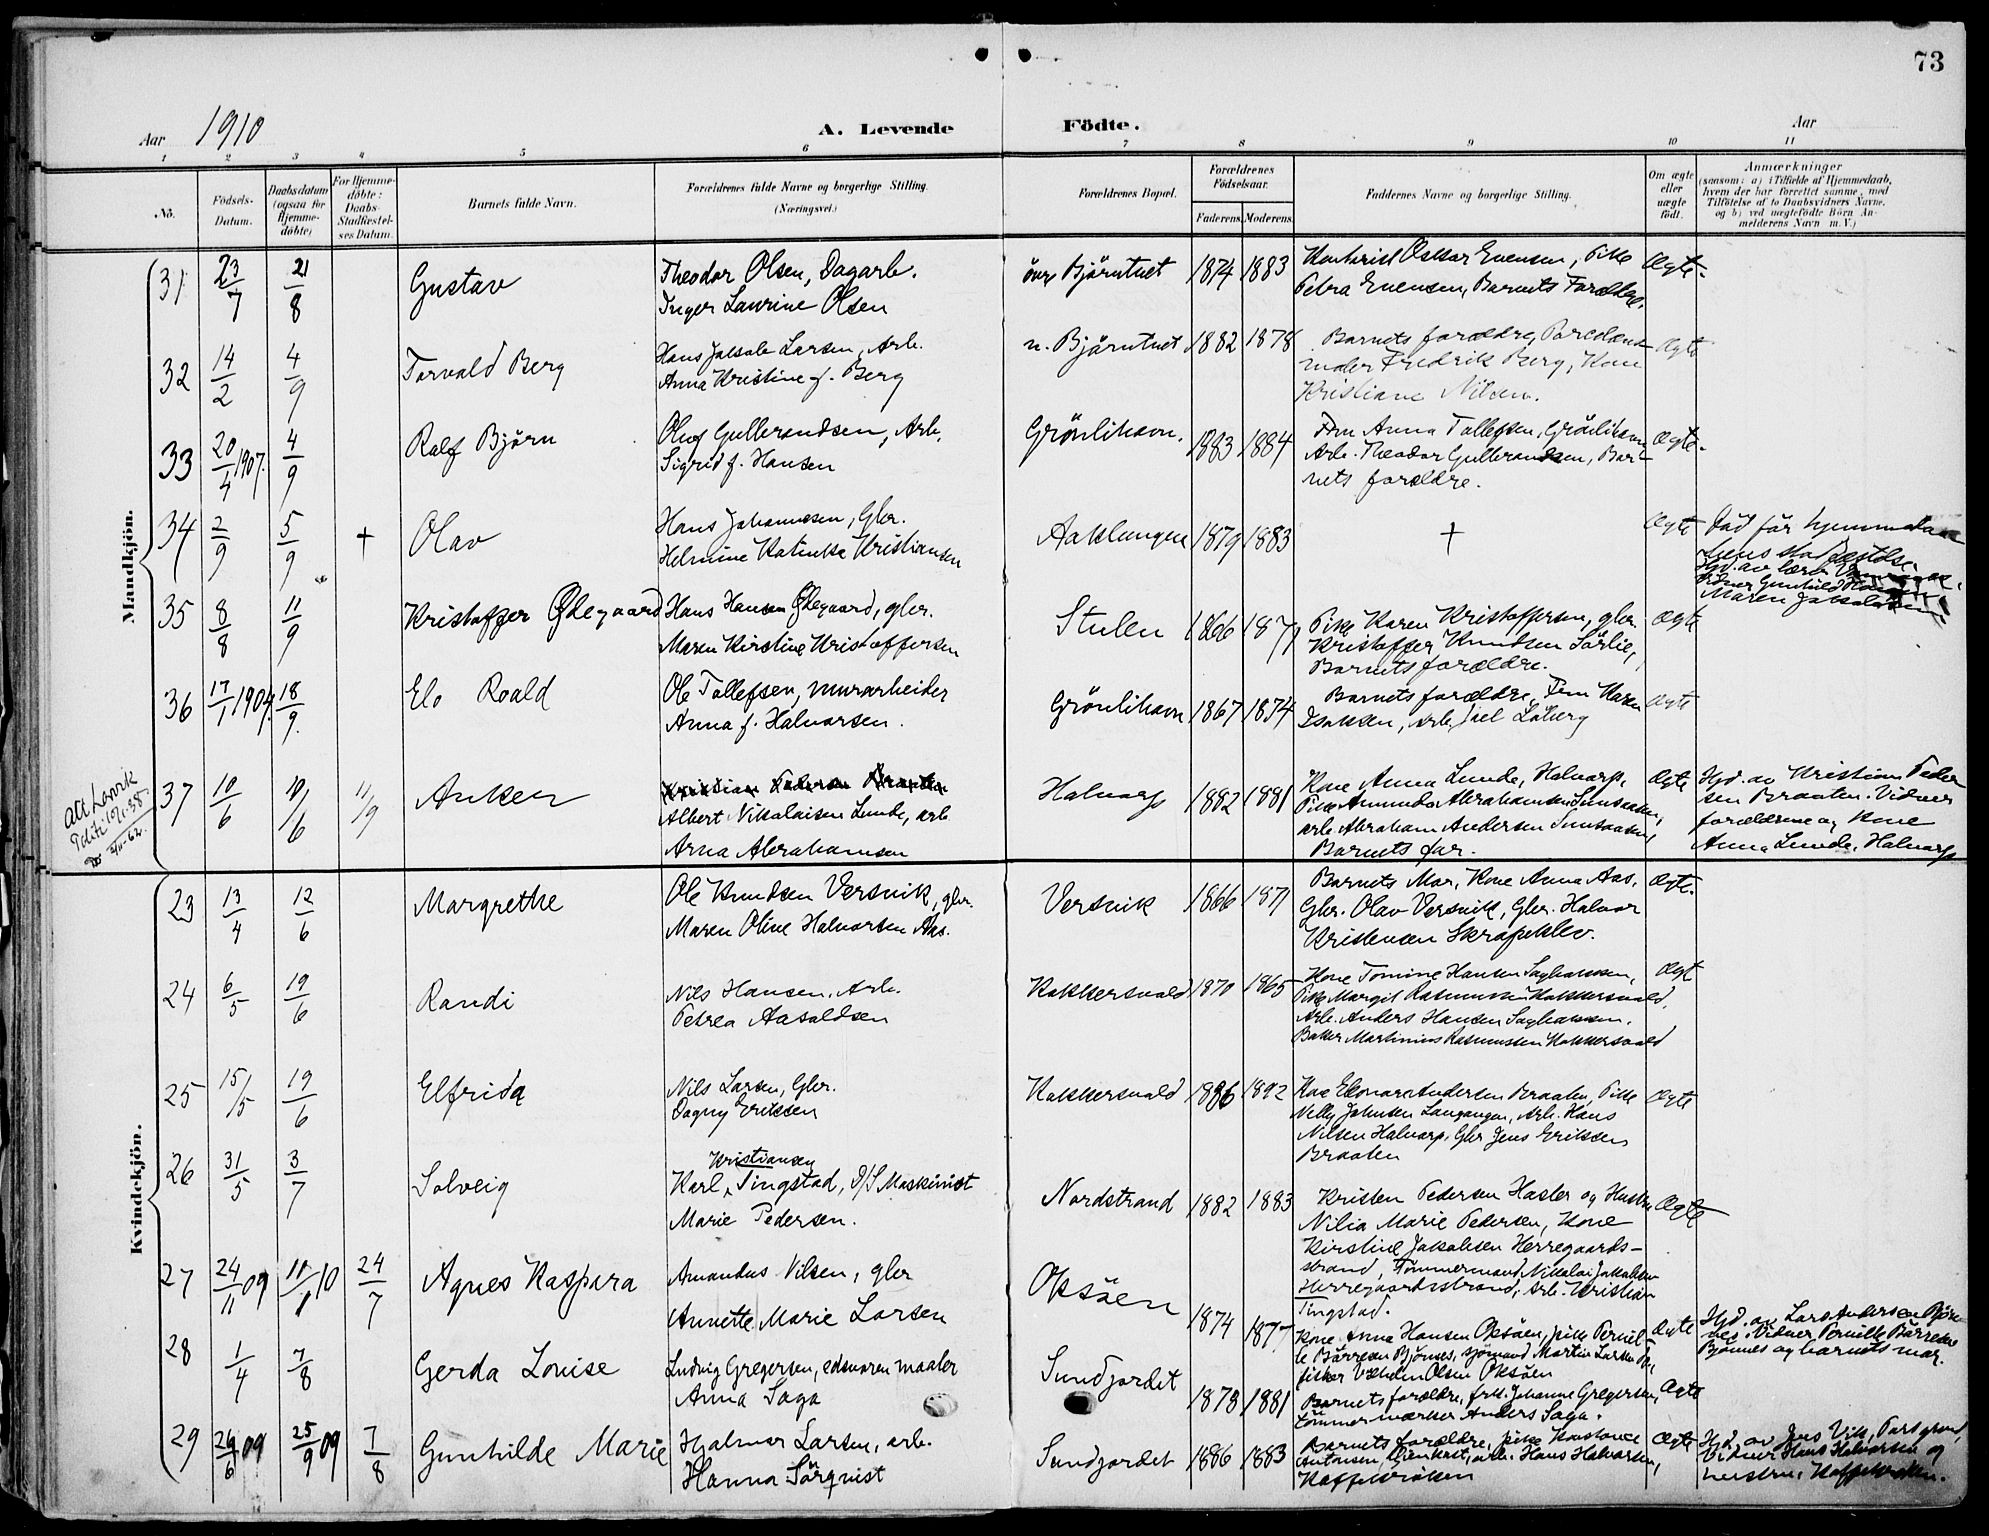 73
Aar 1910
A. Levende Födte.
Aar
1 2 3 4 5 6 7 8 9 10 11
No.
Födsels-Datum.
Daabsdatum (ogsaa for Hjemmedöbte)
For Hjemmedöbte: Daabs-Stadfæstelses Datum.
Barnets fulde Navn.
Forældrenes fulde Navne og borgerlige Stilling. (Næringsvei.)
Forældrenes Bopæl.
Forældrenes Födselsaar.
Faderens. Moderens.
Faddernes Navne og borgerlige Stilling.
Om ægte eller uægte födt.
Anmærkninger
(saasom: a) i Tilfælde af Hjemmedaab, hvem der har forrettet samme, med Tilföielse af to Daabsvidners Navne, og b) ved uægtefödte Börn Anmelderens Navn m. V.)
Mandkjön.
31 23/7 21/8 Gustav
Theodor Olsen, Dagarb.
Inger Laurine Olsen
övre Björntvet 1874 1883
Oskar Evensen, Pike
Petra Evensen, Barnets Forældre.
Ægte.
32 14/2 4/9 Torvald Berg
Hans Jakob Larsen, Arb.
Anna Kristine f. Berg
n. Björntvet 1882 1878
Barnets forældre,
Fredrik Berg, Kone
Kristiane Nilsen.
Ægte
33 20/4 1907. 4/9 Ralf Björn
Oluf Gulbrandsen, Arb.
Sigrid f. Hansen
Grönlihavn. 1883 1884
Fru Anna Tollefsen, Grönlihavn
Arb. Theodor Gulbrandsen, Bar-
nets forældre.
Ægte.
34 2/9 5/9 + Olav
Hans Johannesen, Gbr.
Helmine Katinka Kristiansen
Aaklungen 1879 1883
+
Ægte
Död för hjemmedaa
bens stadfestelse.
Hjd. av lærer
Vidner Gunhild
Maren Jakobsen
35 8/8 11/9 Kristoffer Ødegaard
Hans Hansen Ødegaard, gbr.
Maren Kirstine Kristoffersen
Stulen 1866 1871
Pike Karen Kristoffersen, gbr.
Kristoffer Knudsen Sörlie,
Barnets forældre.
Ægte
36 17/1 1909. 18/9. Elo Roald
Ole Tollefsen, murarbeider
Anna f. Halvorsen.
Grönlihavn 1867 1874
Barnets forældre, Fru Maren
Isaksen, arb. Joel Löberg
Ægte
37 10/6 10/6 11/9 Anker
Kristian Pedersen Braaten
Albert Nikolaisen Lunde, arb
Anna Abrahamsen
Halvarp 1882 1881
Kone Anna Lunde, Halvarp,
Pike Amunda Abrahamsen Sunsaasen,
arb. Abraham Andersen Sunsaasen,
Barnets far.
Ægte
Hjd. av Kristian Peder
sen Braaten. Vidner
forældrene og Kone
Anna Lunde, Halvarp
Kvindekjön.
23 13/4 12/6 Margrethe
Ole Knudsen Versvik, gbr.
Maren Oline Halvorsen Aas.
Versvik 1866 1871
Barnets Mor, Kone Anna Aas,
Gbr. Olav Versvik, Gbr. Halvor
Kristensen Skrapeklev.
Ægte.
24 6/5 19/6 Randi
Nils Hansen, Arb.
Petrea Aasoldsen
Kokkersvold 1870 1865
Kone Tomine Hansen Saghaven,
Pike Margit Rasmussen Kokkersvold.
Arb. Anders Hansen Saghaven.
Baker Martinius Rasmussen Kokkersvold
Ægt
25 15/5 19/6 Elfrida
Nils Larsen, Gbr.
Dagny Eriksen
Kokkersvold 1886 1892
Kone Andersen Braaten, Pike
Nelly Johnsen Langangen, Arb. Hans
Nilsen Halvarp, Gbr Jens Eriksen
Braaten
Ægte
26 31/5 3/7 Solveig
Kristiansen
Karl Tingstad, D/S Maskinist
Marie Pedersen.
Nordstrand 1882 1883
Kristen Pedersen Hasler og Hustru
Nilia Marie Pedersen, Kone
Kirstine Jakobsen Herregaards-
strand, Tömmermand Nikolai Jakobsen
Herregaardsstrand, Arb. Kristian
Tingstad.
Ægte
27 24/11 09 11/1 10 24/7 Agnes Kaspara
Amandus Nilsen, gbr
Annette Marie Larsen
Oksöen 1874 1877
Kone Anna Hansen Oksöen, pike Pernil-
le Börresen Björnes, sjömand Martin Larsen
fisker Vilhelm Olsen Oksöen
Ægte
Hjd. av Lars Andersen Björ-
nes. Vidner Pernille Börresen
Björnes og barnets mor.
28 1/4 7/8 Gerda Louise
Ludvig Gregersen, edsvoren maaler
Anna Saga
Sundjordet 1878 1881
Barnets forældre, frk. Johanne Gregersen,
tömmermærker Anders Saga.
Ægte
29 26/6 09 25/9 09 7/8 Gunhilde Marie
Hjalmar Larsen, arb.
Hanna Sörqvist
Sundjordet 1886 1883
Barnets forældre, pike Konstance
Antonsen, arb. Hans Halvorsen,
Kaffebrökken
Ægte
Hjd. av Jens Vik, Porsgrund,
Vidner Hans Halvorsen og
hustru, Kaffebrökken.